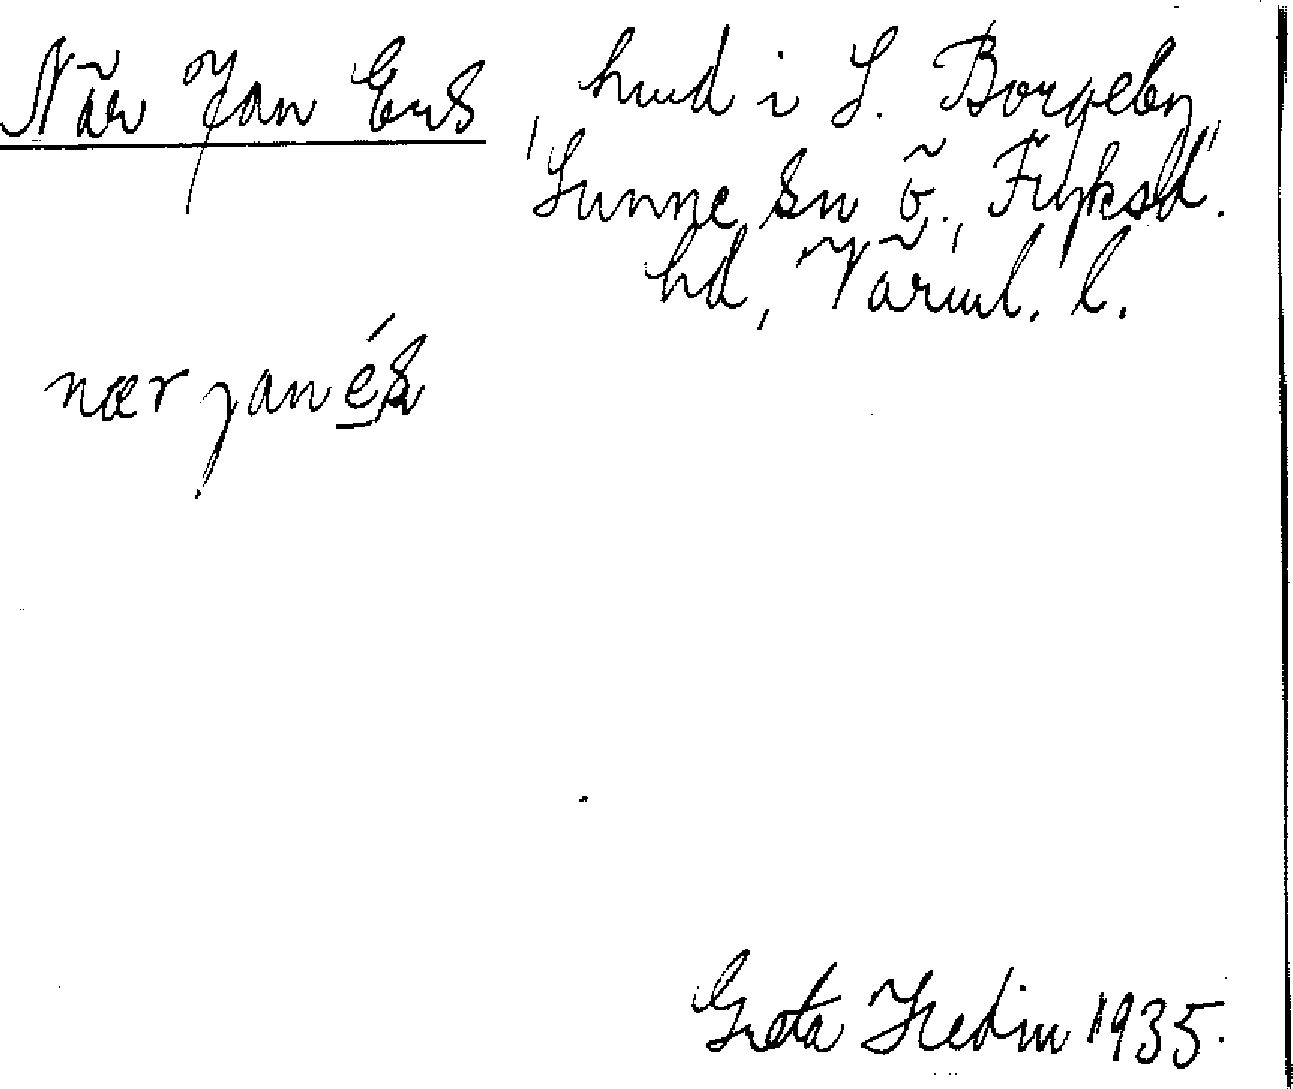 När Jan Ers, hmd i S. Borgeby,
Sunne sn ö., Fryksd.
hd, Värml. l.
nær jan és
Greta Hedin 1935.